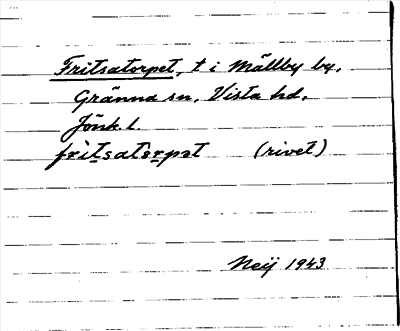 Fritsatorpet, t i Mällby by,
Gränna sn, Vista hd,
Jönk. l.
fritsatorpet (rivet)
Neij 1943